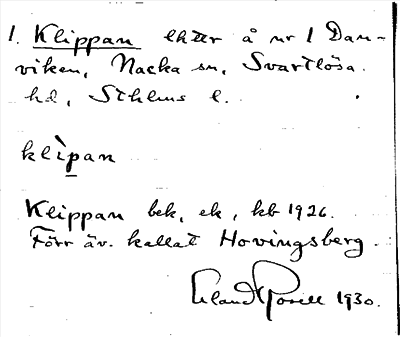 1. Klippan lht å nr 1 Dan-
viken, Nacka sn, Svartlösa
hd, Sthlms l.
klìpan
Klippan bek, ek, kb 1926.
Förr äv. kallat Hovingsberg.
Erland Rosell 1930.